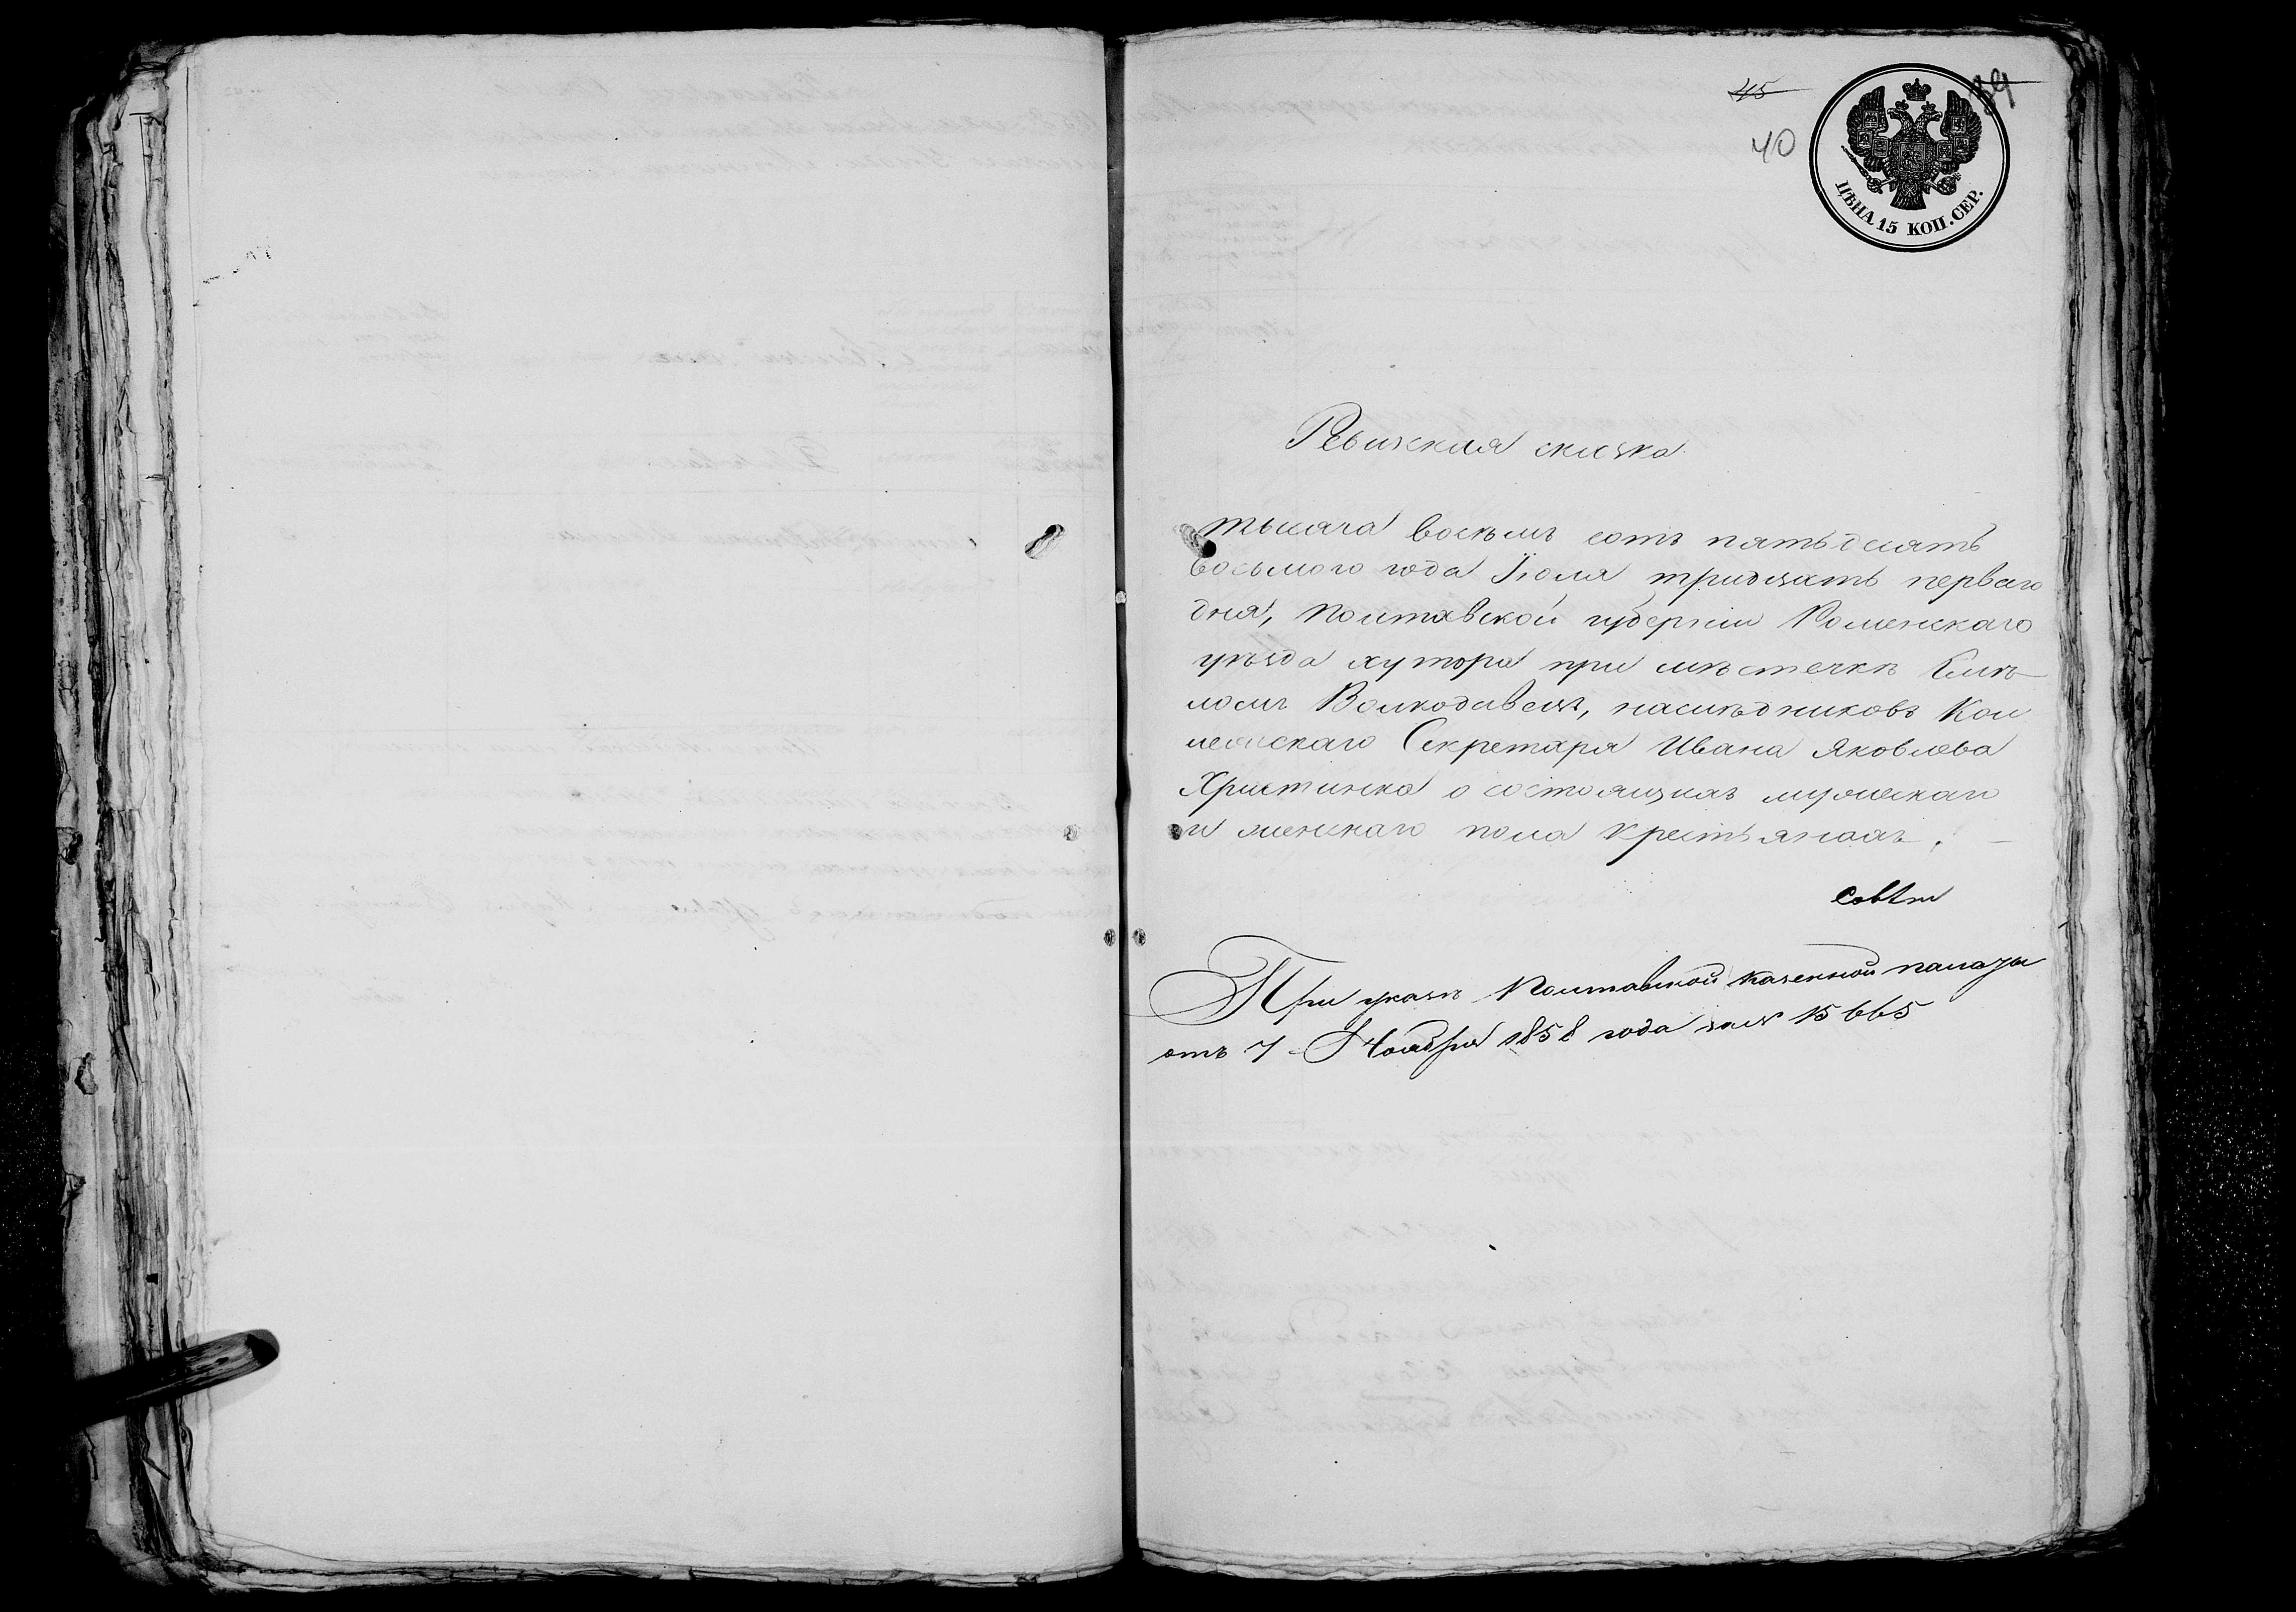 45
39
40
ЦѢНА 15 КОП. СЕР.
Ревизская сказка
тысяча восемь сотъ пятьдесятъ
восьмого года Іюля тридцать перваго
дня, Полтавской губерніи Роменскаго
уѣзда хутора при мѣстечкѣ Смѣ-
ломъ Волкодавецъ, наслѣдниковъ Кол
лежскаго Секретаря Ивана Яковлева
о состоящихъ мужескаго
и женскаго пола крестьянахъ.
При указѣ Полтавской казенной палаты
отъ 7 Ноября 1858 года за № 15665